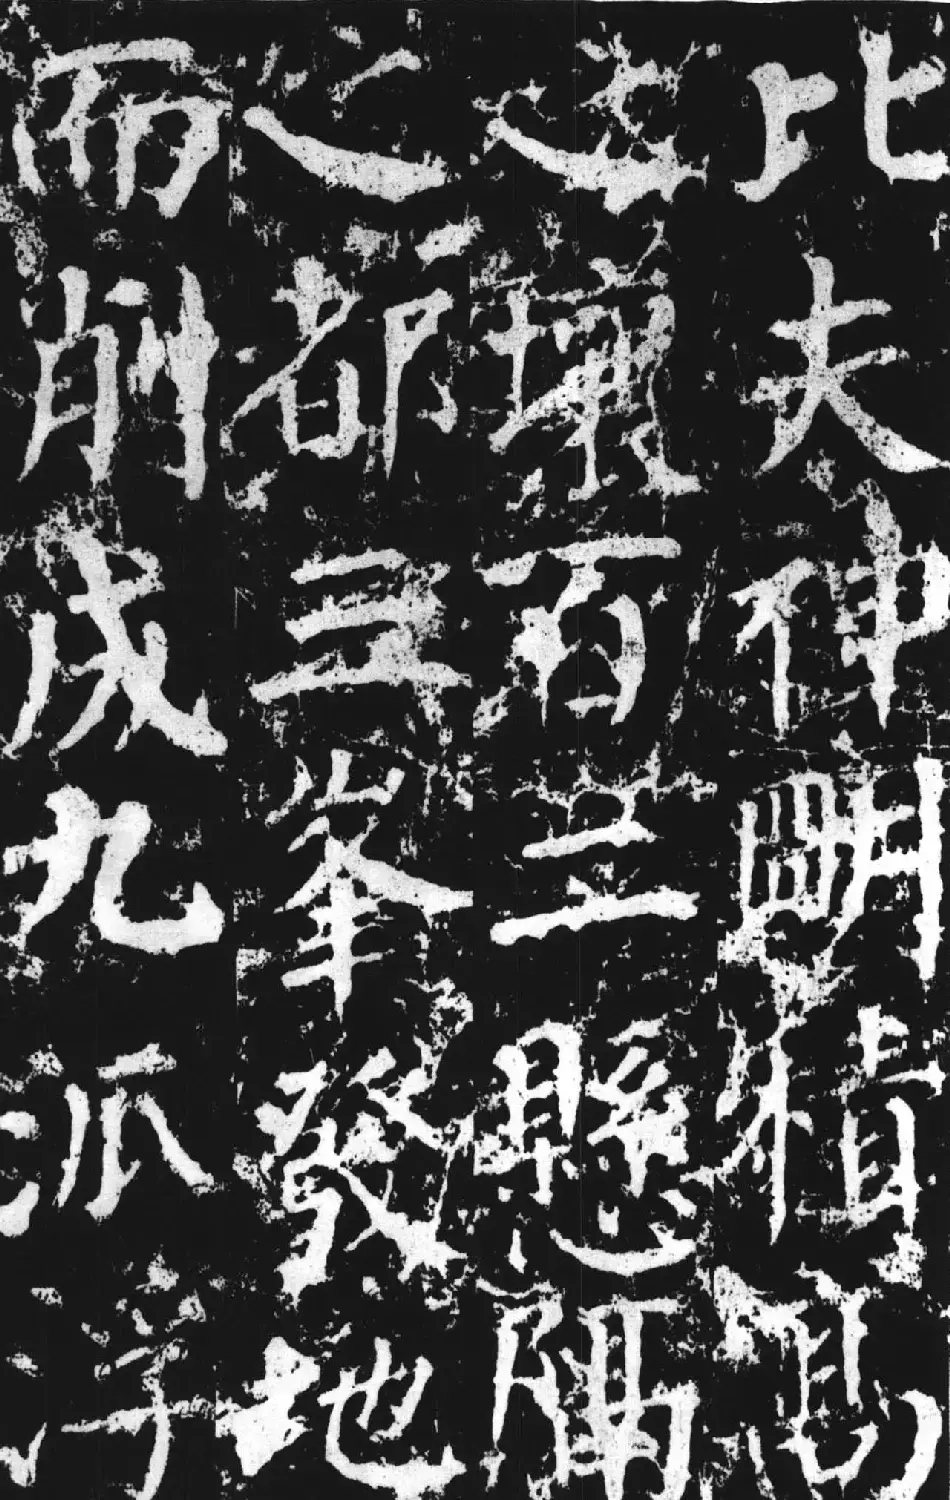 比夫神明積高
之壤百二懸隔
之都三峯發地
而削成九派浮